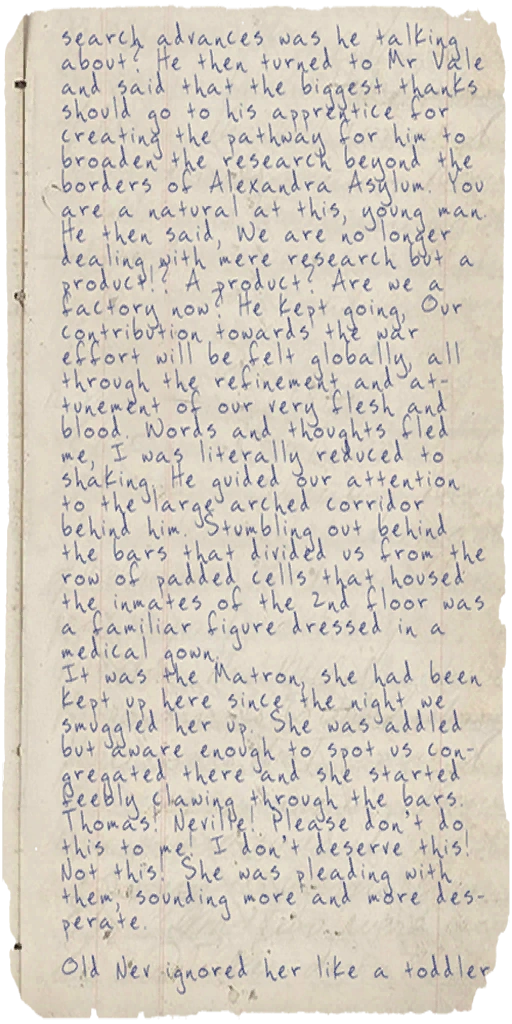 search advances was he talking
about? He then turned to Mr Vale
and said that the biggest thanks
should go to his apprentice for
creating the pathway for him to
broaden the research beyond the
borders of Alexandra Asylum. You
are a natural at this, young man.
He then said, We are no longer
dealing with mere research but a
product!? A product? Are we a
factory now? He kept going, Our
contribution towards the war
effort will be felt globally, all
through the refinement and at-
tunement of our very flesh and
blood. Words and thoughts fled
me, I was literally reduced to
shaking. He guided our attention
to the large arched corridor
behind him. Stumbling out behind
the bars that divided us from the
row of padded cells that housed
the inmates of the 2nd floor was
a familiar figure dressed in a
medical gown.
It was the Matron, she had been
kept up here since the night we
smuggled her up. She was addled
but aware enough to spot us con-
gregated there and she started
feebly clawing through the bars.
Thomas! Neville! Please don't do
this to me! I don't deserve this!
Not this! She was pleading with
them, sounding more and more des-
perate.
Old Nev ignored her like a toddler